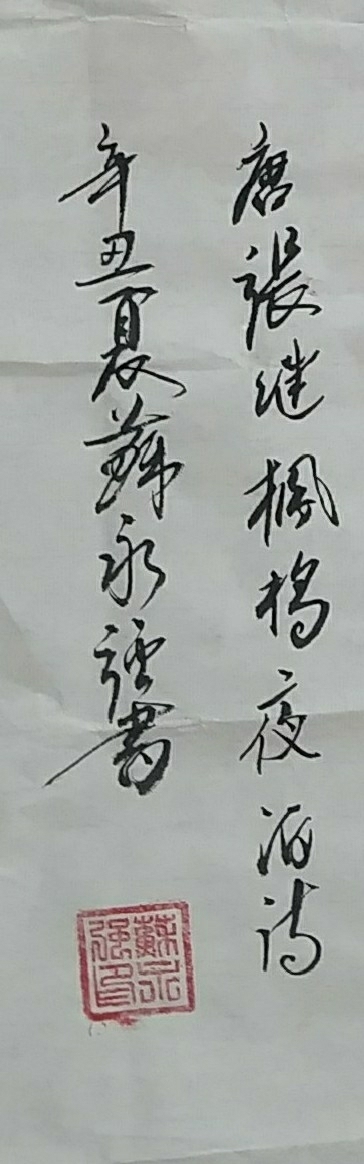 唐張继楓橋夜泊詩
辛丑夏蘇永強書
蘇永
強印